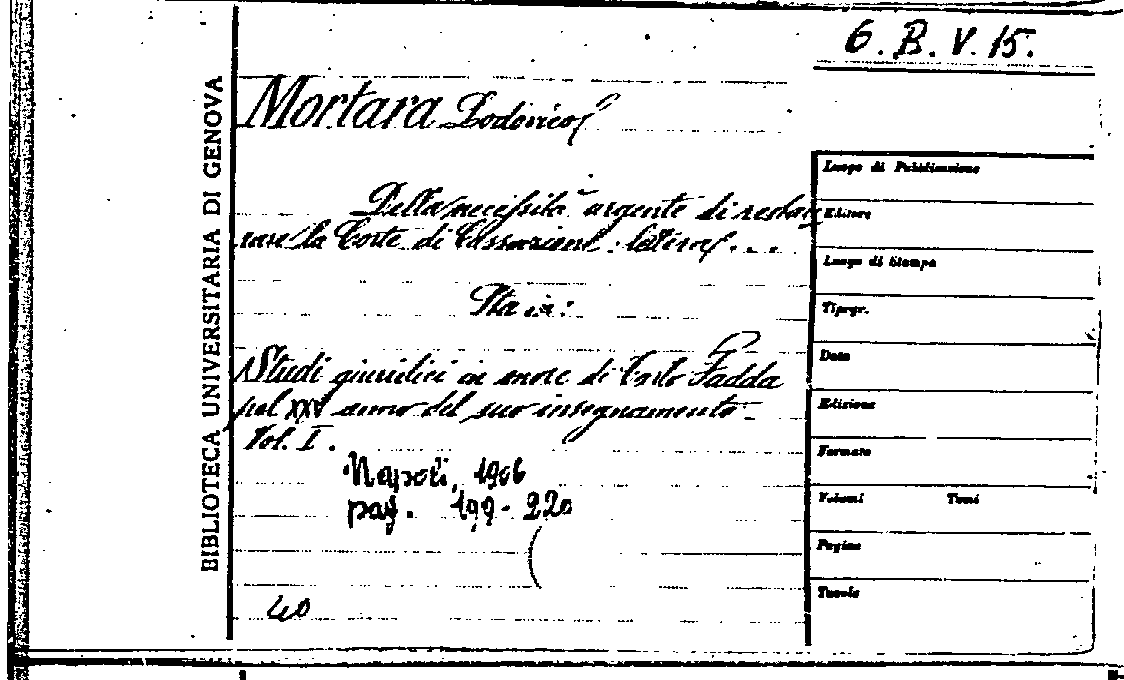 6. B. V. 15.
BIBLIOTECA UNIVERSITARIA DI GENOVA
Mortara Lodovico
Della necessità urgente di restau
rare la Corte di Cassazione. Lettera...
Sta in:
Studi giuridici in onore di Carlo Fadda
pel XXV anno del suo insegnamento.
Vol. I.
Napoli, 1906
pag. 199-220
40
Luogo di Pubblicazione
Editore
Luogo di Stampa
Tipogr.
Data
Edizione
Formato
Volumi Tomi
Pagine
Tavole